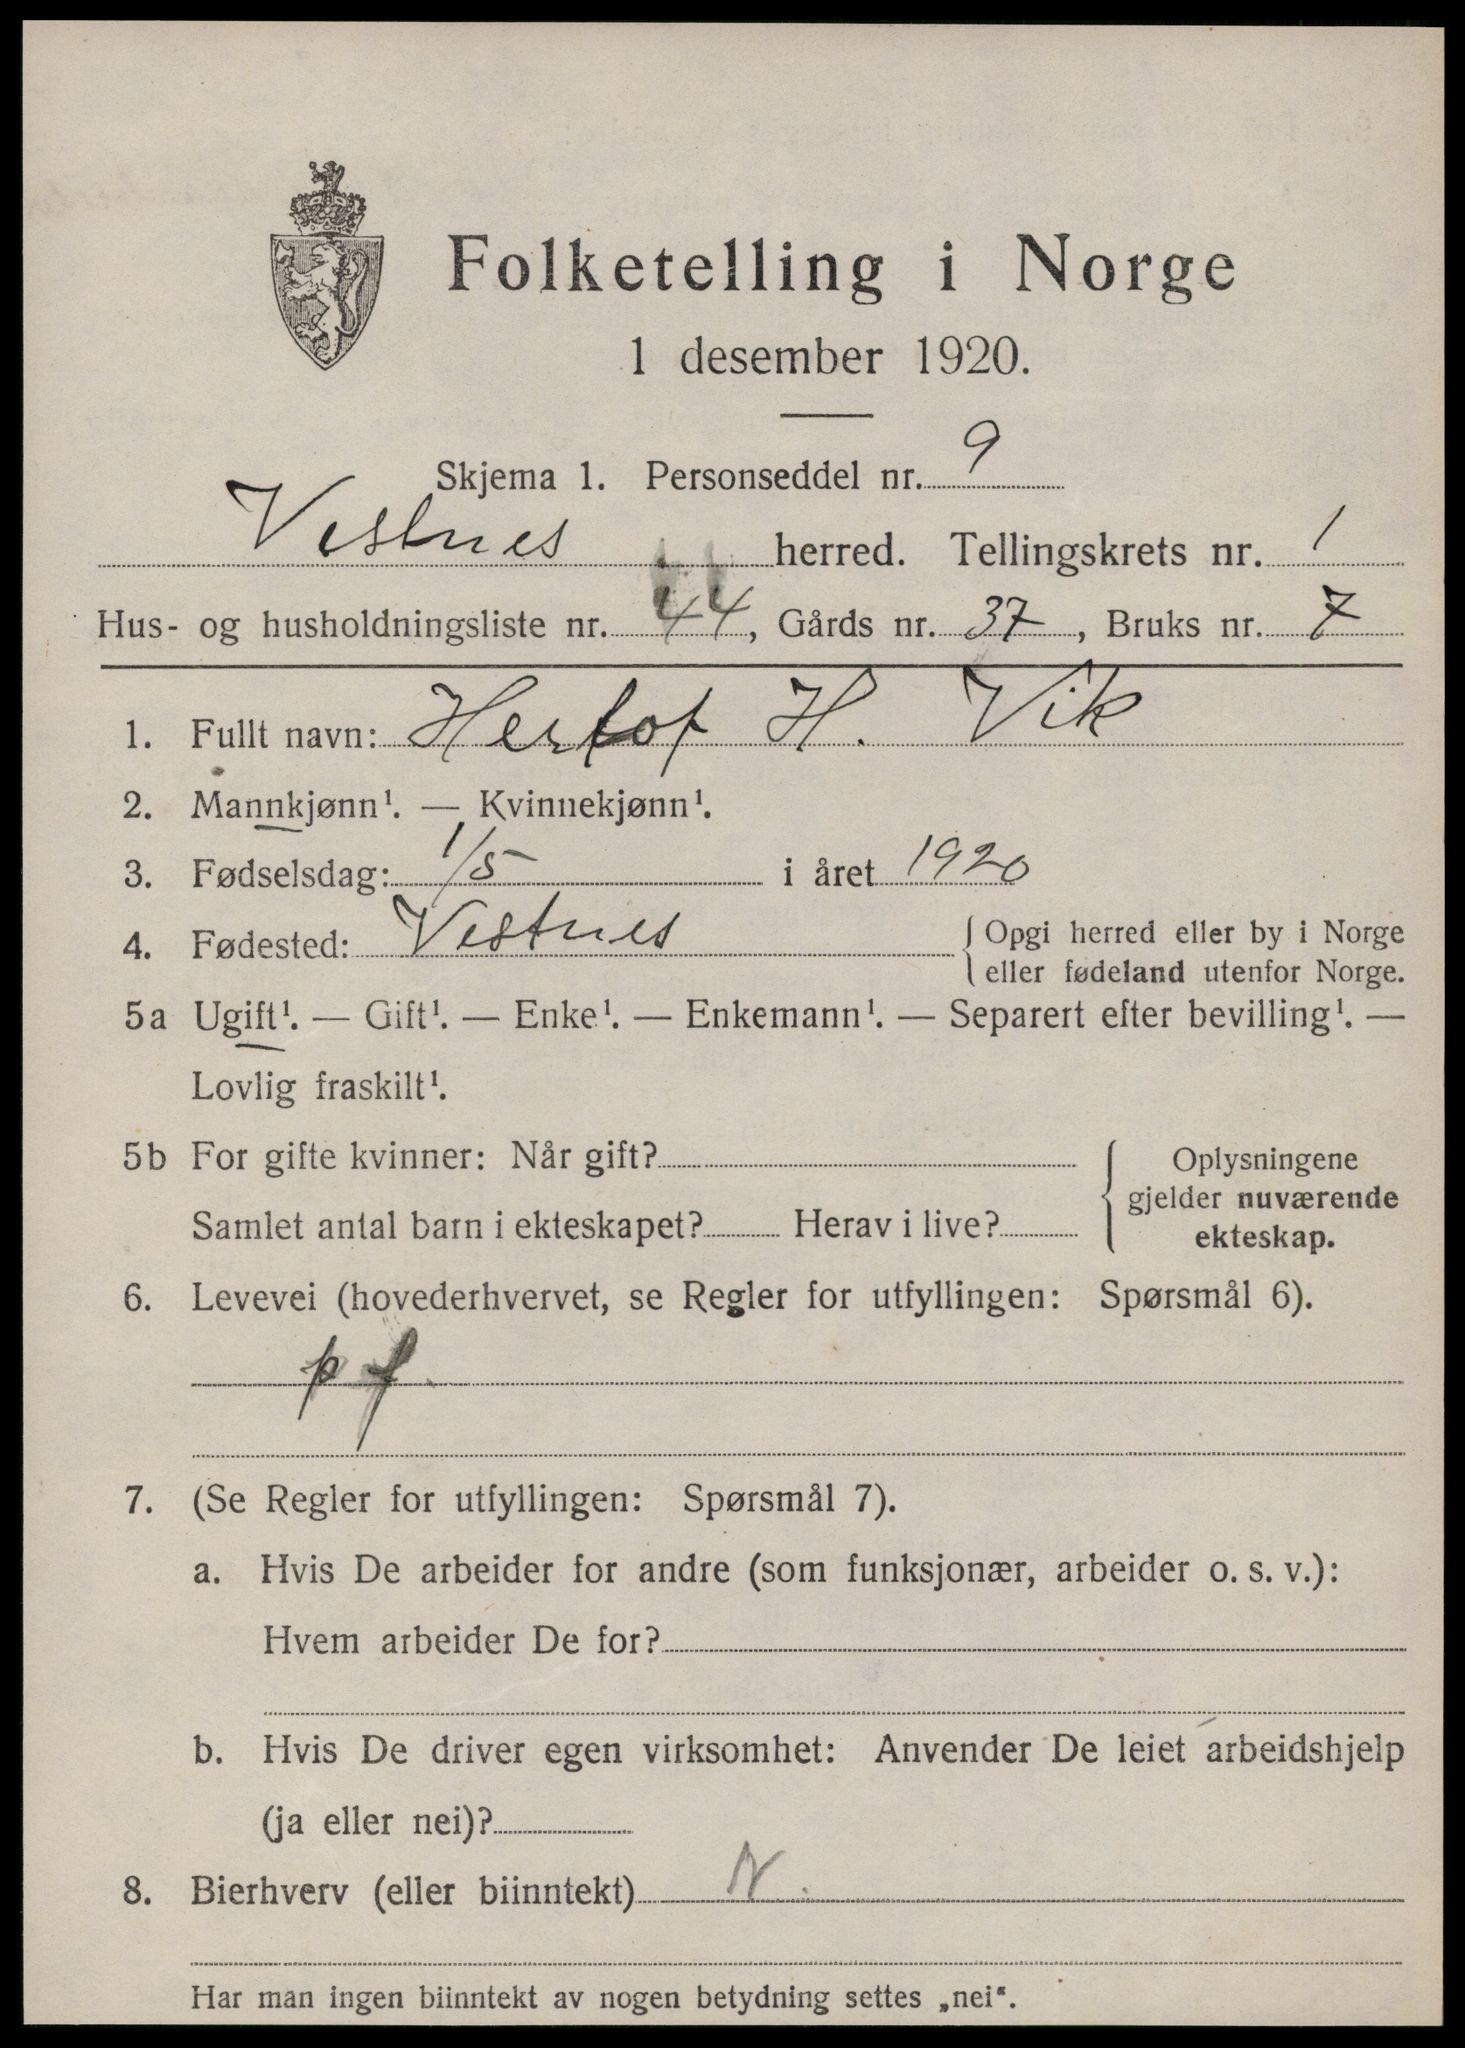 Folketelling i Norge
1 desember 1920.
Skjema 1. Personseddel nr. 9
Vestnes herred. Tellingskrets nr. 1
Hus- og husholdningsliste nr. 44, Gårds nr. 37, Bruks nr. 7
1. Fullt navn: H. Vik
2. Mannkjønn¹. — Kvinnekjønn¹.
3. Fødselsdag: 1/5 i året 1920
4. Fødested: Vestnes { Opgi herred eller by i Norge
eller fødeland utenfor Norge.
5a Ugift¹. — Gift¹. — Enke¹. — Enkemann¹. — Separert efter bevilling¹. —
Lovlig fraskilt¹.
5b For gifte kvinner: Når gift?
Samlet antal barn i ekteskapet? Herav i live?
{ Oplysningene
gjelder nuværende
ekteskap.
6. Levevei (hovederhvervet, se Regler for utfyllingen: Spørsmål 6).
p f.
7. (Se Regler for utfyllingen: Spørsmål 7).
a. Hvis De arbeider for andre (som funksjonær, arbeider o. s. v.):
Hvem arbeider De for?
b. Hvis De driver egen virksomhet: Anvender De leiet arbeidshjelp
(ja eller nei)?
8. Bierhverv (eller biinntekt) N.
Har man ingen biinntekt av nogen betydning settes „nei“.